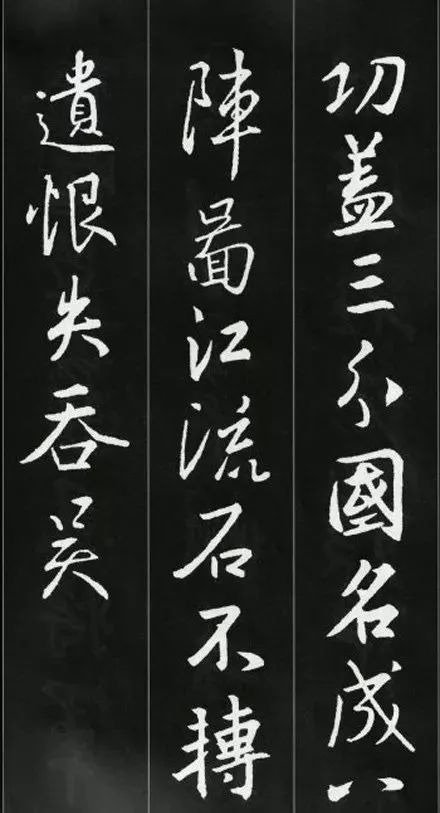 功盖三分國名成八
陣啚江流石不摶
遺恨失吞吴